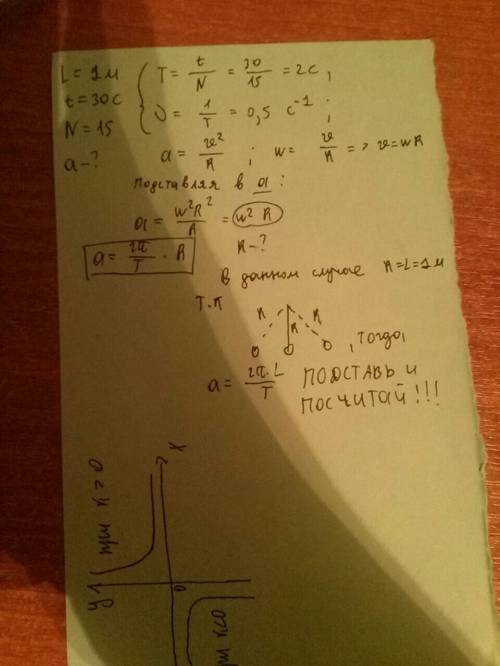 L = 1м
t = 30с
N = 15
a - ?
T = t/N = 30/15 = 2с,
υ = 1/T = 0,5 с⁻¹ ;
a = v²/R ; w = v/R => v = wR
Подставляя в a :
a = w²R²/R = w² R
R - ?
a = 2π/T · R
В данном случае R = L = 1м
Т.К
R R R
, тогда,
a = 2π·L/T ПОДСТАВЬ И
ПОСЧИТАЙ!!!
X
y
0
при к > 0
при к<0